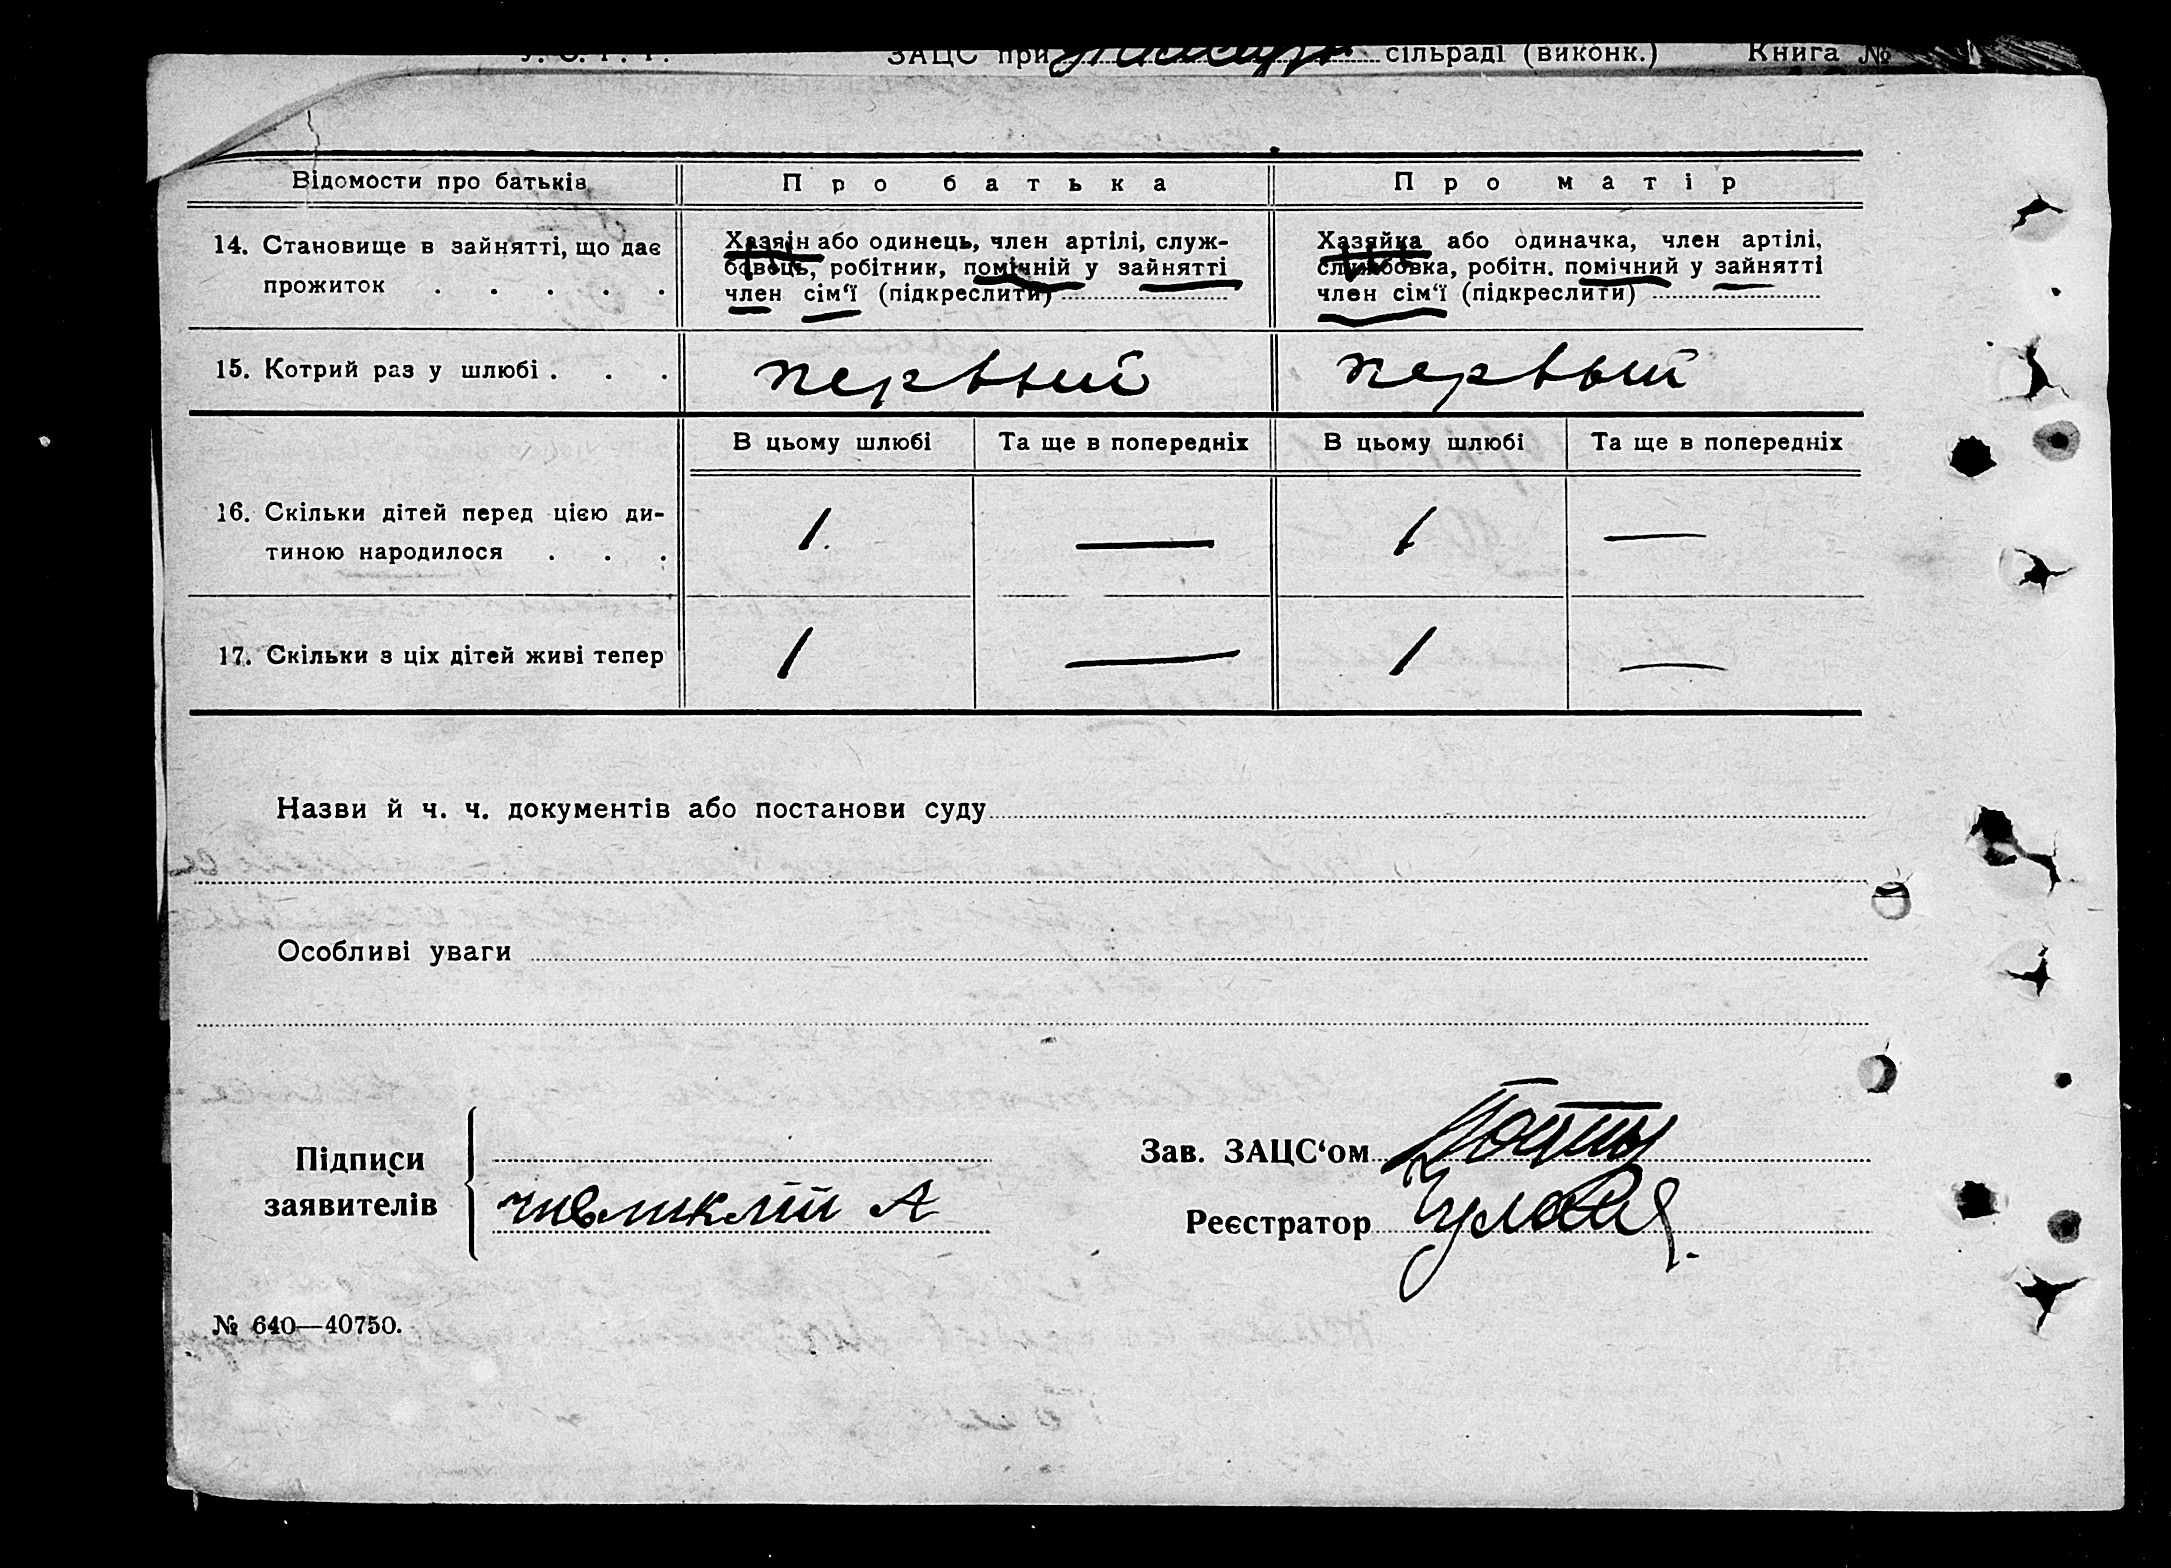 У. С. Р. Р. ЗАЦС при сільраді (виконк.) Книга №
Відомости про батьків Про батька Про матір
14. Становище в зайнятті, що дає прожиток . . . . .
Хазяін або одинець, член артілі, служ-
бовець, робітник, помічній у зайнятті
член сім'ї (підкреслити)
Хазяйка або одиначка, член артілі,
службовка, робітн. помічний у зайнятті
член сім'ї (підкреслити)
15. Котрий раз у шлюбі . . . первый первый
В цьому шлюбі Та ще в попередніх В цьому шлюбі Та ще в попередніх
16. Скільки дітей перед цією ди-
тиною народилося . . . 1. — 1 —
17. Скільки з ціх дітей живі тепер 1 — 1 —
Назви й ч. ч. документів або постанови суду
Особливі уваги
Підписи
заявителів
А
Зав. ЗАЦС'ом
Реєстратор
№ 640—40750.